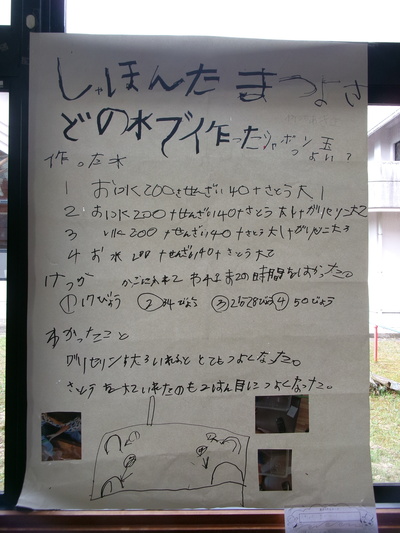 しゃぼんだまつよさ
どの水で作ったシャボン玉
つよい?
作った水
1 お水200+せんざい40+さとう大1
2 お水200+せんざい40+さとう大1+グリセリン大2
3 水200+せんざい40+さとう大+グリセリン大3
4 お水200+せんざい40+さとう大2
けっか かごに入れて われるまでの時間をはかった。
①17びょう ②34びょう ③2分28びょう ④50びょう
わかったこと
グリセリンを大3いれると とてもつよくなった。
さとうを大2いれたのも2ばん目につよくなった。